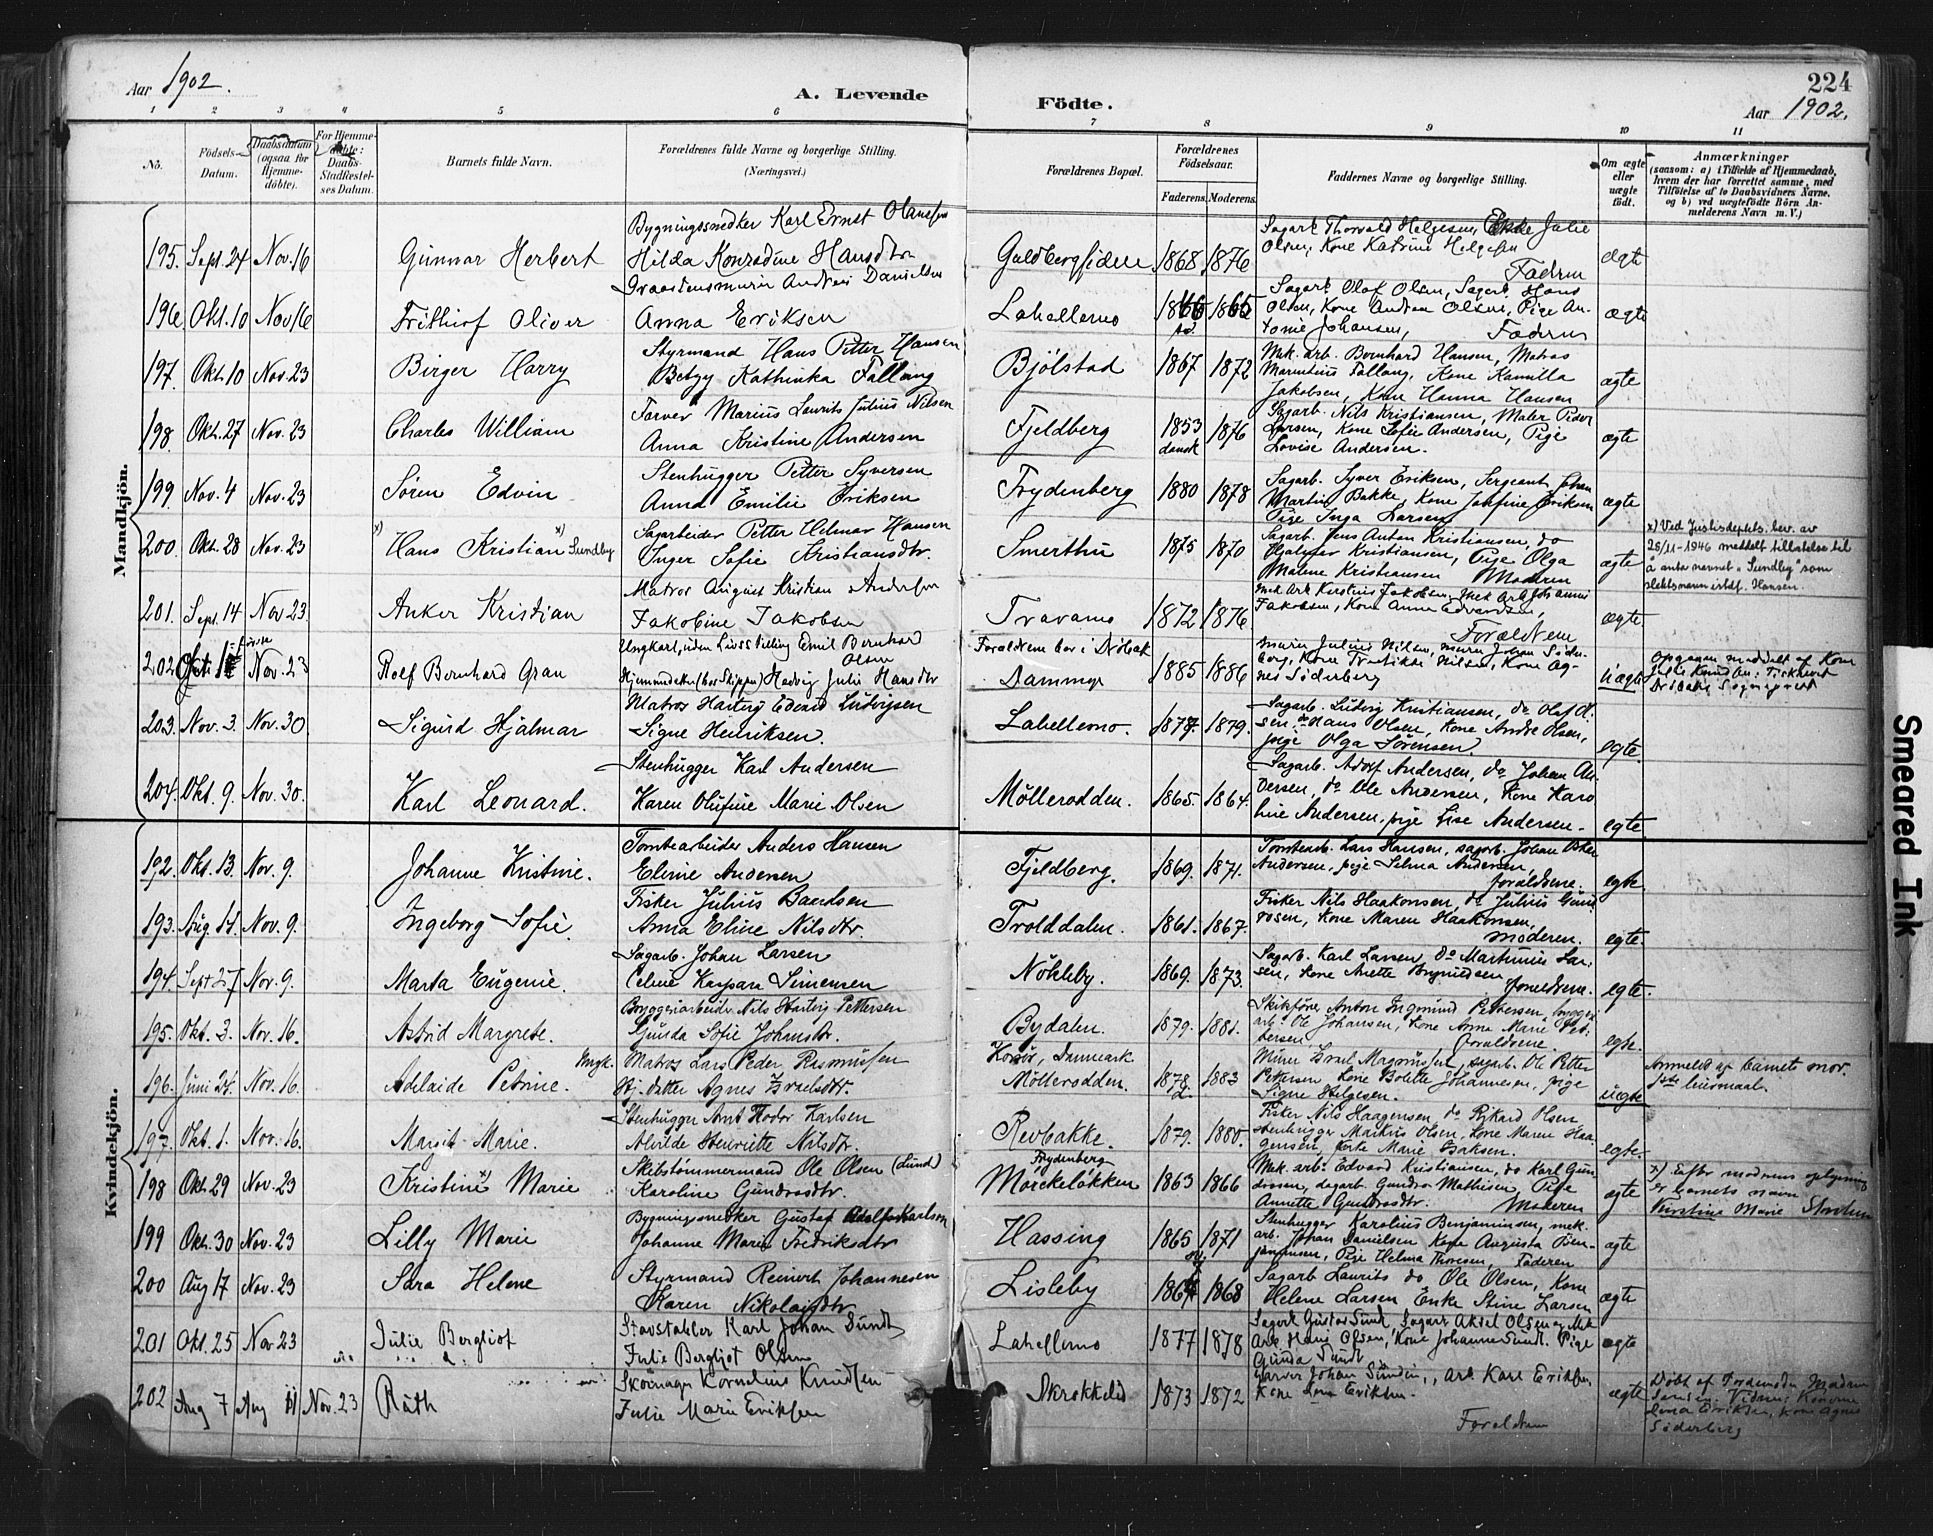 Aar 1902.
A. Levende
Födte.
224
Aar 1902.
1 2 3 4 5 6 7 8 9 10 11
No.
Födsels-Datum.
Daabsdatum (ogsaa for Hjemmedöbte).
For Hjemmedöbte: Daabs-Stadfæstelses Datum.
Barnets fulde Navn.
Forældrenes fulde Navne og borgerlige Stilling. (Næringsvei.)
Forældrenes Bopæl.
Forældrenes Födselsaar.
Faderens. Moderens.
Faddernes Navne og borgerlige Stilling.
Om ægte eller uægte födt.
Anmærkninger
(saasom: a) i Tilfælde af Hjemmedaab,
hvem der har forrettet samme, med
Tilföielse af to Daabsvidners Navne,
og b) ved uægtefödte Börn Anmelderens Navn m. V.)
Mandkjön.
195. Sept. 24 Nov. 16 Gunnar Herbert
Bygningssnedker Karl Ernst Olaussen
Hilda Konradine Hansdtr
1868 1876
Sagarb. Thorvald Helgesen, Enke Julie
Olsen, Kone Katrine Helgesen
Fadren
ægte
196 Okt. 10 Nov 16 Frithiof Oliver
Graastensmurer Andreas Danielsen
Anna Eriksen
Lahellemo 1866 1865
Sagarb. Olaf Olsen, Sagarb. Hans
Olsen, Kone Andrea Olsen, Pige An-
tonie Johansen, Faderen
ægte
197. Okt. 10 Nov. 23 Birger Harry
Styrmand Hans Petter Hansen
Betzy Kathinka Fallang
Bjölstad 1867 1872
Mek. arb. Bernhard Hansen, Matros
Marentius Fallang, Kone Kamilla
Jakobsen, Kone Hanna Hansen
ægte
198. Okt. 27 Nov. 23 Charles William
Farver Marius Laurits Julius Nilsen
Anna Kristine Andersen
Fjeldberg 1853 dansk 1876
Sagarb. Nils Kristiansen, Maler Peder
Larsen, Kone Sofie Andersen, Pige
Lovise Andersen.
ægte
199. Nov. 4 Nov. 23 Sören Edvin
Stenhugger Petter Syversen
Anna Emilie Eriksen
Frydenberg 1880 1878
Sagarb. Syver Eriksen, Sergeant Johan
Martin Bakke, Kone Josefine Eriksen
Pige Inga Larsen
ægte
200. Okt. 28 Nov. 23 x) Hans Kristian x) Sundby
Sagarbeider Petter Hilmar Hansen
Inger Sofie Kristiansdtr.
Smerthu 1875 1870
Sagarb. Jens Anton Kristiansen, do
Hjalmar Kristiansen, Pige Olga
Malene Kristiansen Modren
ægte
x) Ved Justisdeptets. bev. av
25/11-1946 meddelt tillatelse til
å anta navnet „Sundby" som
slektsnavn istdf. Hansen.
201. Sept. 14 Nov 23. Anker Kristian
Matros August Kristian Andersen
Jakobine Jakobsen
Traramo 1872 1876
Jakobsen, Kone Anne Edvardsen,
Forældrene
ægte
202. Nov. 23 Rolf Bernhard Gran
Ungkarl, uden Livsstilling Emil Bernhard
Olsen
Hjemmedatter (hos Skipper) Hedvig Julie Hansdtr
Forældrene bor i Dröbak
Dammyr 1885 1886
Murer Julius Nilsen, murer Johan Söder-
berg, Kone Fredrikke Nilsen, Kone Ag-
nes Söderberg
uægte
203. Nov. 3. Nov. 30. Sigurd Hjalmar
Matros Hartvig Edvard Ludvigsen
Signe Henriksen.
Lahellemo. 1877. 1879.
Sagarb. Ludvig Kristiansen, do Olaf Ol-
sen, do Hans Olsen, Kone Andrea Olsen,
pige Olga Sörensen.
egte.
204. Okt. 9. Nov. 30. Karl Leonard.
Stenhugger Karl Andersen
Karen Olufine Marie Olsen
Möllerodden. 1865. 1864.
Sagarb. Adolf Andersen, do Johan An-
dersen, do Ole Andersen, Kone Karo-
line Andersen, pige Lise Andersen.
egte
Kvindekjön.
192. Okt. 13. Nov. 9. Johanne Kristine.
Tomtearbeider Anders Hansen
Eline Andersen
Fjeldberg. 1869. 1871.
Tomtearb. Lars Hansen, sagarb. Johan Oskar
Andersen, pige Selma Andersen,
foraldrene. egte.
193. Aug. 14. Nov. 9. Ingeborg Sofie.
Fisker Julius Baardsen
Anna Eline Nilsdtr.
Trolddalen. 1861. 1867.
Fisker Nils Haakonsen, do Julius Gun-
dersen, Kone Maren Haakonsen,
moderen. egte.
194. Sept 27 Nov. 9. Marta Eugenie.
Sagarb. Johan Larsen
Celine Kaspara Simensen
Nöhleby. 1869. 1873.
Sagarb. Karl Larsen, do Martinius Lar-
sen, Kone Anette Brynildsen
foreldrene. egte.
195. Okt. 3. Nov. 16. Astrid Margrete.
Bryggeriarbeider Nils Hartvig Pettersen
Gunda Sofie Johansdtr.
Bydalen. 1879. 1881.
Ingmund Pettersen, brygge
arb. Ole Johansen, Kone Anna Marie Pet-
tersen Foraldrene. egte.
196. Juni 24. Nov. 16. Adelaide Petrine.
Ungk. Matros Lars Peder Rasmussen
Hj. datter Agnes Israelsdtr.
Korsör, Danmark
Möllerodden. 1878 1883
Murer Israel Magnussen, sagarb. Ole Petter
Pettersen, Kone Bolette Johannesen, pige
Signe Helgesen.
uegte
Anmeldt af barnets mor.
1ste leiermaal.
197. Okt. 1. Nov. 16. Margit Marie.
Stenhugger Arnt Theodor Karlsen
Alvilde Henriette Nilsdtr.
Revbakke. 1879. 1880.
Fisker Nils Haagensen, do Rikard Olsen
stenhugger Markus Olsen, Kone Maren Haa-
gensen, Marie Isaksen.
egte.
198 Okt. 29 Nov. 23 Kristine x) Marie
Skibstömmermand Ole Olsen (Lund)
Karoline Gundersdtr.
Frydenberg
Mörckelökken 1863 1866
Mek. arb. Edvard Kristiansen, do Karl Gun-
dersen, Gunder Mathisen, Pige
Annette Gundersdtr. Moderen
ægte
x) Efter modrens oplysning
er barnets navn
Kirstine Marie
199 Okt. 30 Nov. 23 Lilly Marie
Bygningssnedker Gustaf Adolf Karlson
Johanne Marie Fredriksdtr
Hassing 1865 1871
Stenhugger Karolius Benjaminsen, mek.
arb. Johan Danielsen Kone Augusta Ben-
jaminsen, Pige Helma Thoresen, Faderen
ægte
200 Aug 17 Nov. 23 Sara Helene
Styrmand Reinert Johannesen
Karen Nikolaisdtr
Lisleby 1864 1868
Sagarb Laurits do Ole Olsen, Kone
Helene Larsen Enke Stine Larsen
ægte
201 Okt. 25 Nov 23 Julie Bergliot
Stavstabler Karl Johan Sundt
Julie Bergljot Olsen
Lahellemo 1877 1878
Sagarb Gustav Sundt, Sagarb Aksel Olsen og Mek
Arb Hans Olsen, Kone Johanne Sundt. Pige
Gunda Sundt
ægte
202 Aug 7 Aug 11 Nov. 23 Ruth
Skomager Kornelius Knudsen
Julie Marie Eriksen
Skrokkelid 1873 1872
Garver Johan Sundin, Arb. Karl Eriksen,
Kone Eriksen.
Foraldrene
ægte
Döbt af Jordemoder Madam
Jensen. Vidner: Konerne
Lena Eriksen, Kone Agnes
Söderberg
Smeared Ink